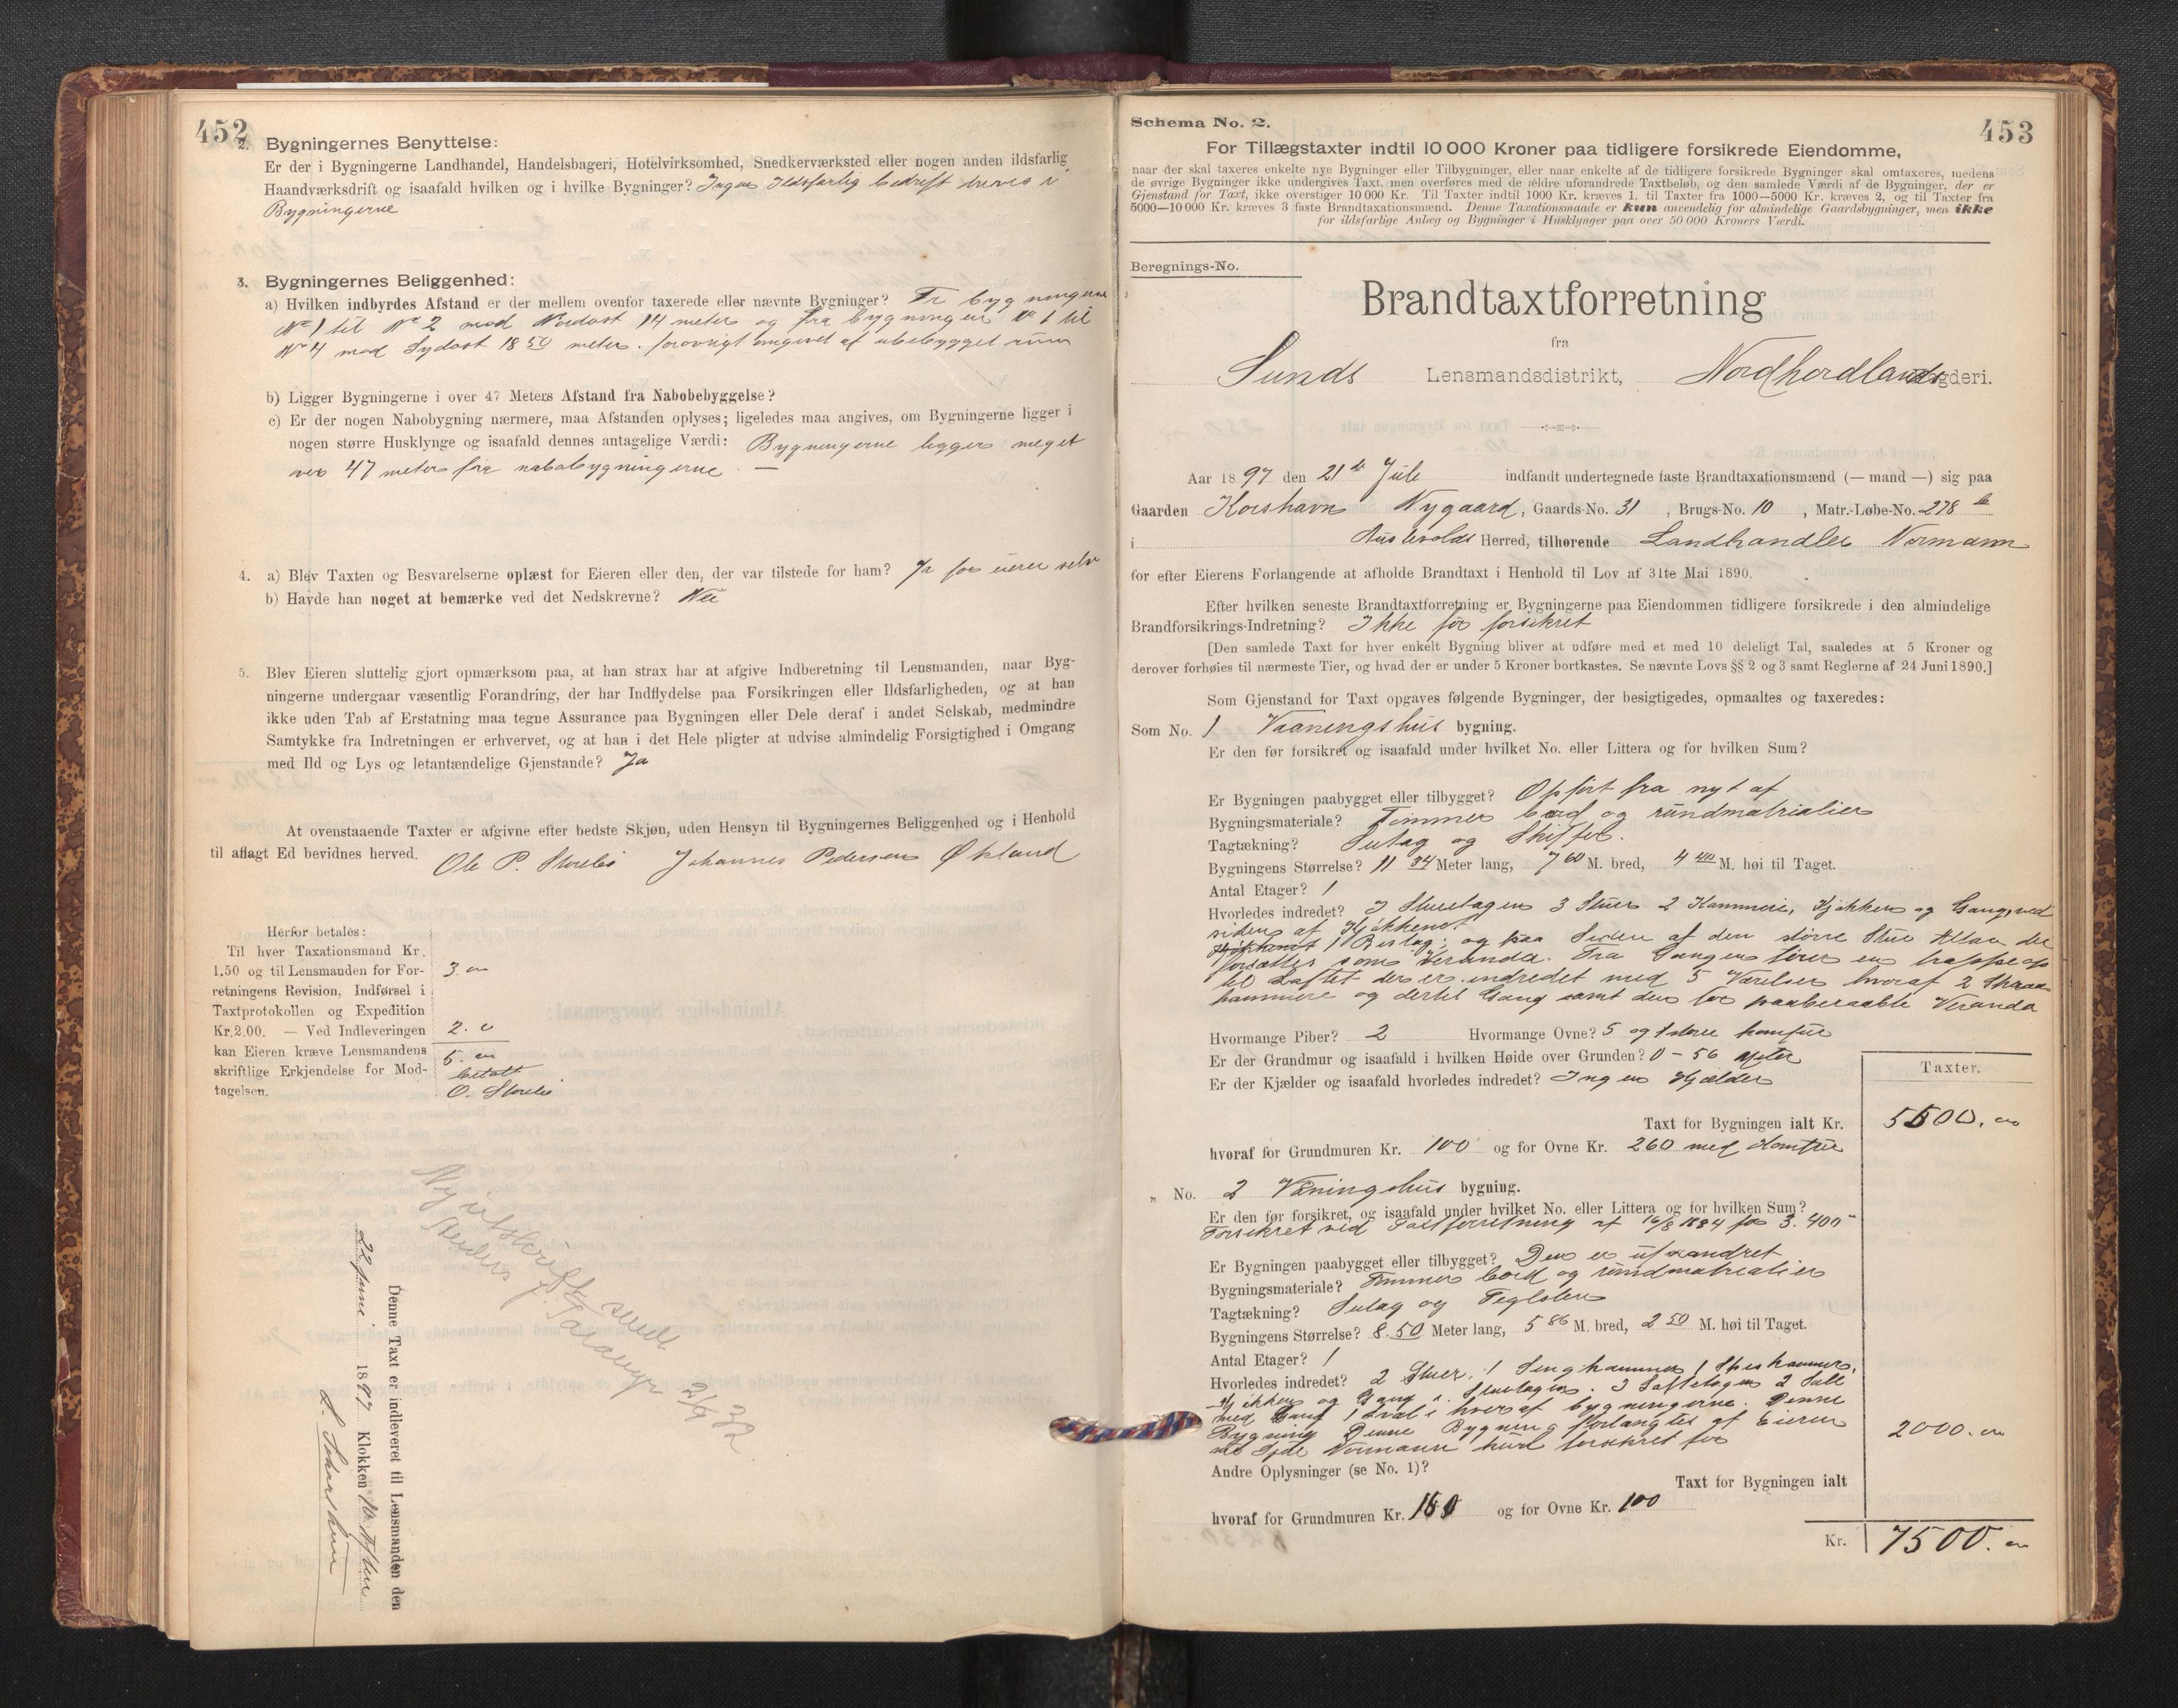 452
2. Bygningernes Benyttelse:
Er der i Bygningerne Landhandel, Handelsbageri, Hotelvirksomhed, Snedkerværksted eller nogen anden ildsfarlig
Haandværksdrift og isaafald hvilken og i hvilke Bygninger? Ingen Ildsfarlig bedrift drives i
Bygningerne
3. Bygningernes Beliggenhed:
a) Hvilken indbyrdes Afstand er der mellem ovenfor taxerede eller nævnte Bygninger? Fr bygningerne
No 1 til No 2 mod Nordost 14 meter og fra bygningen No 1 til
No 4 mod Sydost 18 50 meter. forøvrigt omgivet af ubebygget rum
b) Ligger Bygningerne i over 47 Meters Afstand fra Nabobebyggelse?
c) Er der nogen Nabobygning nærmere, maa Afstanden oplyses; ligeledes maa angives, om Bygningerne ligger i
nogen større Husklynge og isaafald dennes antagelige Værdi: Bygningerne ligger meget
over 47 meter fra nabobygningerne. —
4. a) Blev Taxten og Besvarelserne oplæst for Eieren eller den, der var tilstede for ham? Ja for eieren selv
b) Havde han noget at bemærke ved det Nedskrevne? Nei
5. Blev Eieren sluttelig gjort opmærksom paa, at han strax har at afgive Indberetning til Lensmanden, naar Byg-
ningerne undergaar væsentlig Forandring, der har Indflydelse paa Forsikringen eller Ildsfarligheden, og at han
ikke uden Tab af Erstatning maa tegne Assurance paa Bygningen eller Dele deraf i andet Selskab, medmindre
Samtykke fra Indretningen er erhvervet, og at han i det Hele pligter at udvise almindelig Forsigtighed i Omgang
med Ild og Lys og letantændelige Gjenstande? Ja
At ovenstaaende Taxter er afgivne efter bedste Skjøn, uden Hensyn til Bygningernes Beliggenhed og i Henhold
til aflagt Ed bevidnes herved.
Ole P. Storebø Johannes Pedersen Økland
Herfor betales:
Til hver Taxationsmand Kr.
1,50 og til Lensmanden for For- 3.
retningens Revision, Indførsel i
Taxtprotokollen og Expedition
Kr. 2.00. — Ved Indleveringen 2.
kan Eieren kræve Lensmandens 5.
skriftlige Erkjendelse for Mod- betalt
tagelsen. O. Storebø
Ny utskrift sendt
2/9 32
Denne Taxt er indleveret til Lensmanden den
22 juni 1897 Klokken 10 Aften
453
Schema No. 2.
For Tillægstaxter indtil 10 000 Kroner paa tidligere forsikrede Eiendomme,
naar der skal taxeres enkelte nye Bygninger eller Tilbygninger, eller naar enkelte af de tidligere forsikrede Bygninger skal omtaxeres, medens
de øvrige Bygninger ikke undergives Taxt, men overføres med de ældre uforandrede Taxtbeløb, og den samlede Værdi af de Bygninger, der er
Gjenstand for Taxt, ikke overstiger 10 000 Kr. Til Taxter indtil 1000 Kr. kræves 1, til Taxter fra 1000—5000 Kr. kræves 2, og til Taxter fra
5000—10 000 Kr. kræves 3 faste Brandtaxationsmænd. Denne Taxationsmaade er kun anvendelig for almindelige Gaardsbygninger, men ikke
for ildsfarlige Anlæg og Bygninger i Husklynger paa over 50 000 Kroners Værdi.
Beregnings-No.
Brandtaxtforretning
fra
Sunds Lensmandsdistrikt, Nordhordlands Fogderi.
Aar 1897 den 21de Juli indfandt undertegnede faste Brandtaxationsmænd (— mand —) sig paa
Gaarden Korshavn Nygaard, Gaards-No. 31, Brugs-No. 10, Matr.-Løbe-No. 278 b
i Austevolds Herred, tilhørende Landhandler Normann
for efter Eierens Forlangende at afholde Brandtaxt i Henhold til Lov af 31te Mai 1890.
Efter hvilken seneste Brandtaxtforretning er Bygningerne paa Eiendommen tidligere forsikrede i den almindelige
Brandforsikrings-Indretning? Ikke før forsikret
[Den samlede Taxt for hver enkelt Bygning bliver at udføre med et med 10 deleligt Tal, saaledes at 5 Kroner og
derover forhøies til nærmeste Tier, og hvad der er under 5 Kroner bortkastes. Se nævnte Lovs §§ 2 og 3 samt Reglerne af 24 Juni 1890.]
Som Gjenstand for Taxt opgaves følgende Bygninger, der besigtigedes, opmaaltes og taxeredes:
Som No. 1 Vaaningshus bygning.
Er den før forsikret og isaafald under hvilket No. eller Littera og for hvilken Sum?
Er Bygningen paabygget eller tilbygget? Opført fra nyt af
Bygningsmateriale? Tømmer bord og rundmatrialier
Tagtækning? Sutag og Skiffer.
Bygningens Størrelse? 11 34 Meter lang, 7 60 M. bred, 4 40 M. høi til Taget.
Antal Etager? 1
Hvorledes indredet? I Stuetagen 3 Stuer 2 Kammere, Kjøkken og Gang, ved
siden af Kjøkkenet
1 Bislag; og paa Siden af den større Stue Altan der
forsættes som Veranda. Fra Gangen fører en trappe op
til Loftet der er indredet med 5 Værelser hvoraf 2 Skraa-
kammere og dertil Gang samt den før paaberaabte Veranda
Hvormange Piber? 2 Hvormange Ovne? 5 og 1 større komfur
Er der Grundmur og isaafald i hvilken Høide over Grunden? 0 - 56 Meter
Er der Kjælder og isaafald hvorledes indredet? Ingen Kjælder
Taxter.
Taxt for Bygningen ialt Kr. 5500.
hvoraf for Grundmuren Kr. 100 og for Ovne Kr. 260 med Komfur
„ No. 2 Vaaningshus bygning.
Er den før forsikret, og isaafald under hvilket No. eller Littera og for hvilken Sum?
Forsikret ved Taxtforretning af 16/8 1884 for 3.400
Er Bygningen paabygget eller tilbygget? Den er uforandret
Bygningsmateriale? Tømmer bord og rundmatrialier
Tagtækning? Sutag og Teglsten
Bygningens Størrelse? 8.50 Meter lang, 5 86 M. bred, 2 50 M. høi til Taget.
Antal Etager? 1
Hvorledes indredet? 2 Stuer, 1 Sengkammer 1 Speskammer,
Kjøkken og Gang i Stuetagen. I Loftetagen 2 Sale
med Gang i hver af bygningerne. Denne
Bygning Denne Bygning forlangtes af Eieren
Normann kun forsikret for 2000.
Andre Oplysninger (se No. 1)?
Taxt for Bygningen ialt
hvoraf for Grundmuren Kr. og for Ovne Kr. 100
Kr. 7500.